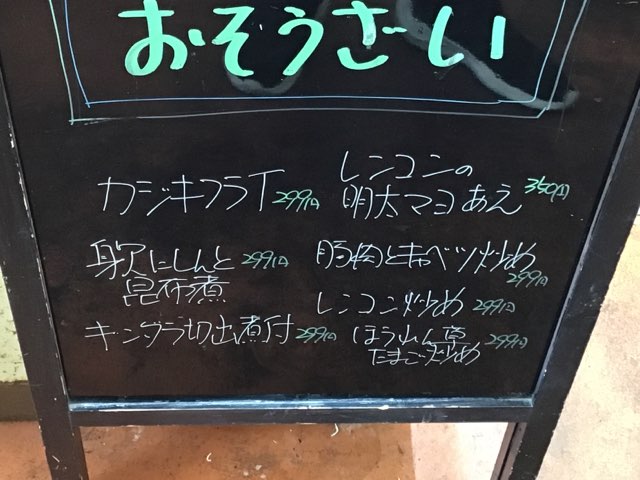 おそうざい
カジキフライ 299円
身欠にしんと 299円
昆布煮
ギンダラ切出煮付 299円
レンコンの
明太マヨあえ 350円
豚肉とキャベツ炒め
299円
レンコン炒め 299円
ほうれん草 299円
たまご炒め